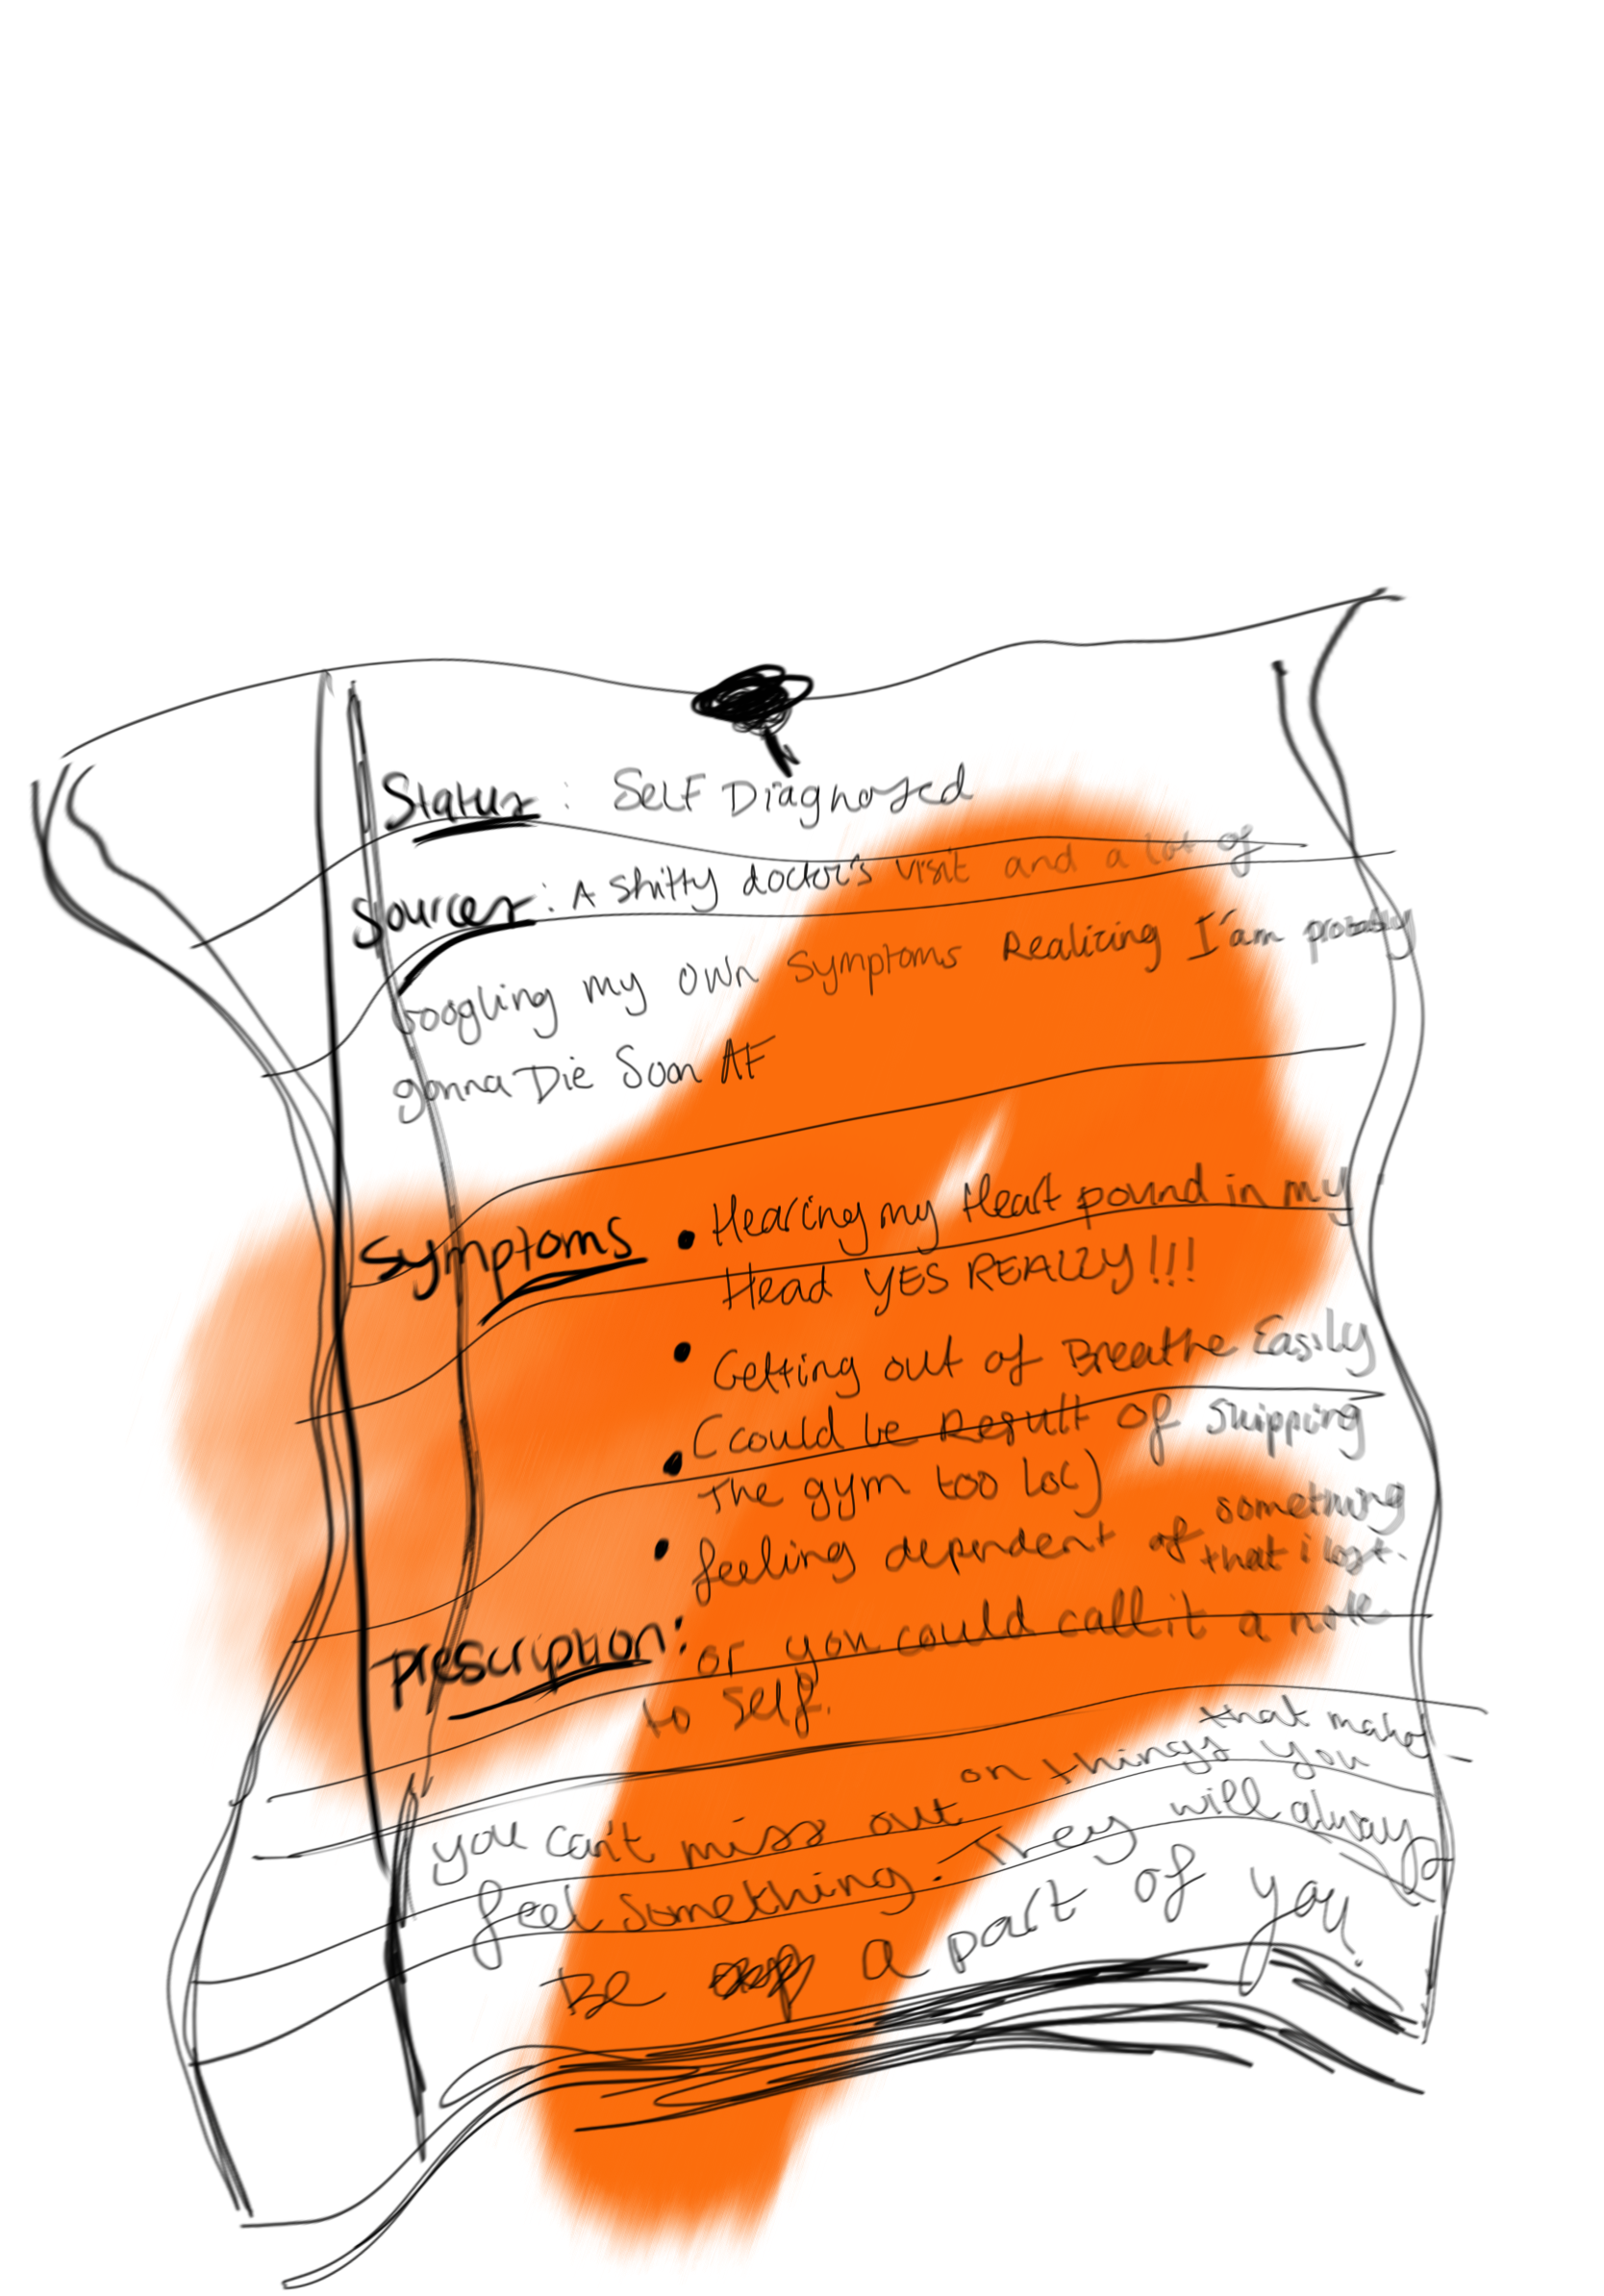 Status : Self Diagnosed
Sources : A shitty doctor's visit and a lot of
Googling my own symptoms Realizing I'am probably
gonna Die Soon AF
Symptoms • Hearing my Heart pound in my
Head YES REALLY!!!
• Getting out of Breathe Easily
(could be Result of Skipping
• The gym too lol)
• feeling dependent of something
that i lost.
Prescription: or you could call it a note
to self.
you can't miss out on things that make you
feel something. They will always
Be a part of you.